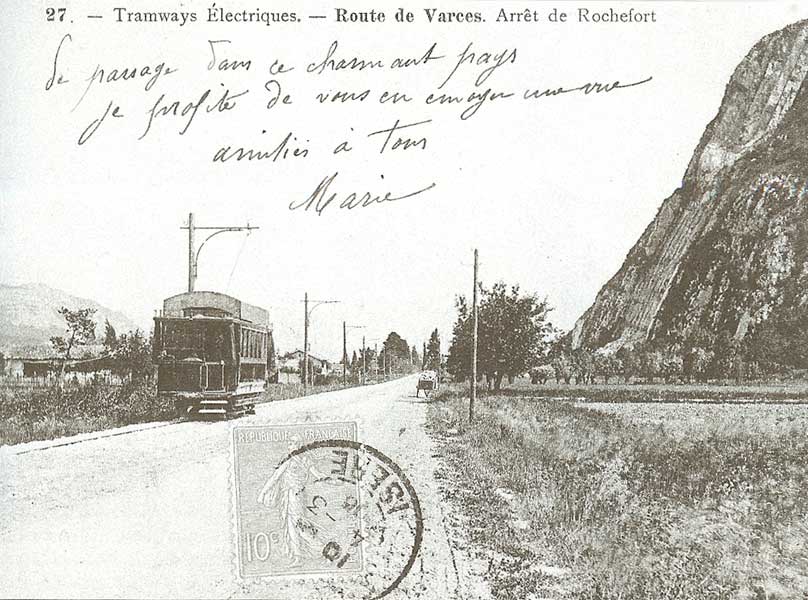 27. — Tramways Électriques. — Route de Varces. Arrêt de Rochefort
De passage dans ce charmant pays
je profite de vous en envoyer une vue
amitiés à tous
Marie
REPUBLIQUE FRANÇAISE
10c
ISERE